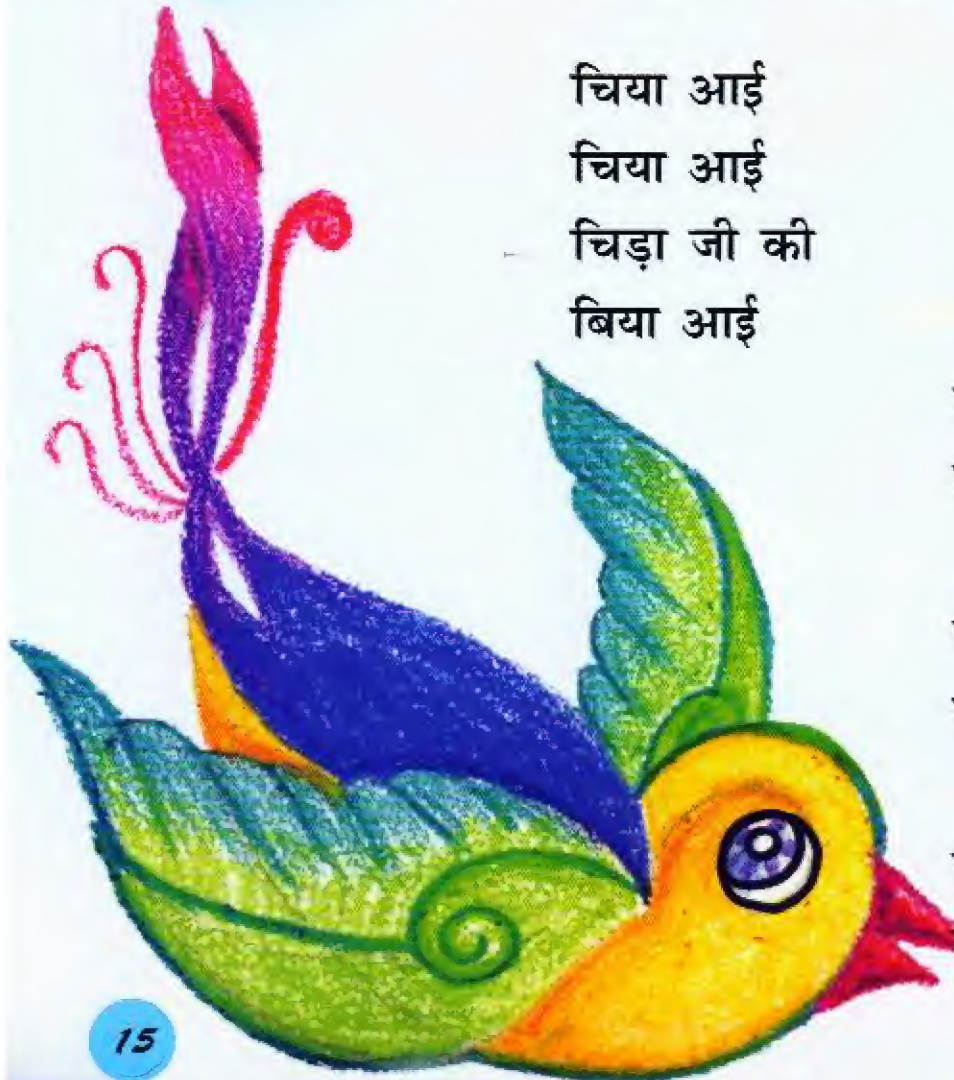 चिया आई
चिया आई
चिड़ा जी की
बिया आई
15